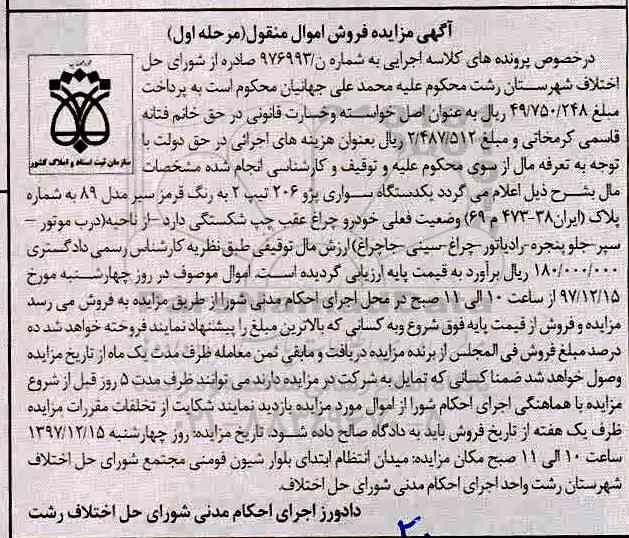 آگهی مزایده فروش اموال منقول(مرحله اول)
درخصوص پرونده های کلاسه اجرایی به شماره ن/۹۷۶۹۹۳ صادره از شورای حل
اختلاف شهرستان رشت محکوم علیه محمد علی جهانیان محکوم است به پرداخت
مبلغ ۴۹/۷۵۰/۲۴۸ ریال به عنوان اصل خواسته وخسارت قانونی در حق خانم فتانه
قاسمی کرمخاتی و مبلغ ۲/۴۸۷/۵۱۲ ریال بعنوان هزینه های اجرائی در حق دولت با
توجه به تعرفه مال از سوی محکوم علیه و توقیف و کارشناسی انجام شده مشخصات
مال بشرح ذیل اعلام می گردد یکدستگاه سواری پژو ۲۰۶ تیپ ۲ به رنگ قرمز سیر مدل ۸۹ به شماره
پلاک (ایران۳۸-۴۷۳ م ۶۹) وضعیت فعلی خودرو چراغ عقب چپ شکستگی دارد –از ناحیه(درب موتور –
سپر-جلو پنجره-رادیاتور-چراغ-سینی-جاچراغ) ارزش مال توقیفی طبق نظریه کارشناس رسمی دادگستری
۱۸۰/۰۰۰/۰۰۰ ریال برآورد به قیمت پایه ارزیابی گردیده است. اموال موصوف در روز چهارشنبه مورخ
۹۷/۱۲/۱۵ از ساعت ۱۰ الی ۱۱ صبح در محل اجرای احکام مدنی شورا از طریق مزایده به فروش می رسد
مزایده و فروش از قیمت پایه فوق شروع وبه کسانی که بالاترین مبلغ را پیشنهاد نمایند فروخته خواهد شد ده
درصد مبلغ فروش فی المجلس از برنده مزایده دریافت و مابقی ثمن معامله ظرف مدت یک ماه از تاریخ مزایده
وصول خواهد شد ضمنا کسانی که تمایل به شرکت در مزایده دارند می توانند ظرف مدت ۵ روز قبل از شروع
مزایده با هماهنگی اجرای احکام شورا از اموال مورد مزایده بازدید نمایند شکایت از تخلفات مقررات مزایده
ظرف یک هفته از تاریخ فروش باید به دادگاه صالح داده شود. تاریخ مزایده: روز چهارشنبه ۱۳۹۷/۱۲/۱۵
ساعت ۱۰ الی ۱۱ صبح مکان مزایده: میدان انتظام ابتدای بلوار شیون فومنی مجتمع شورای حل اختلاف
شهرستان رشت واحد اجرای احکام مدنی شورای حل اختلاف.
دادورز اجرای احکام مدنی شورای حل اختلاف رشت
سازمان ثبت اسناد و املاک کشور